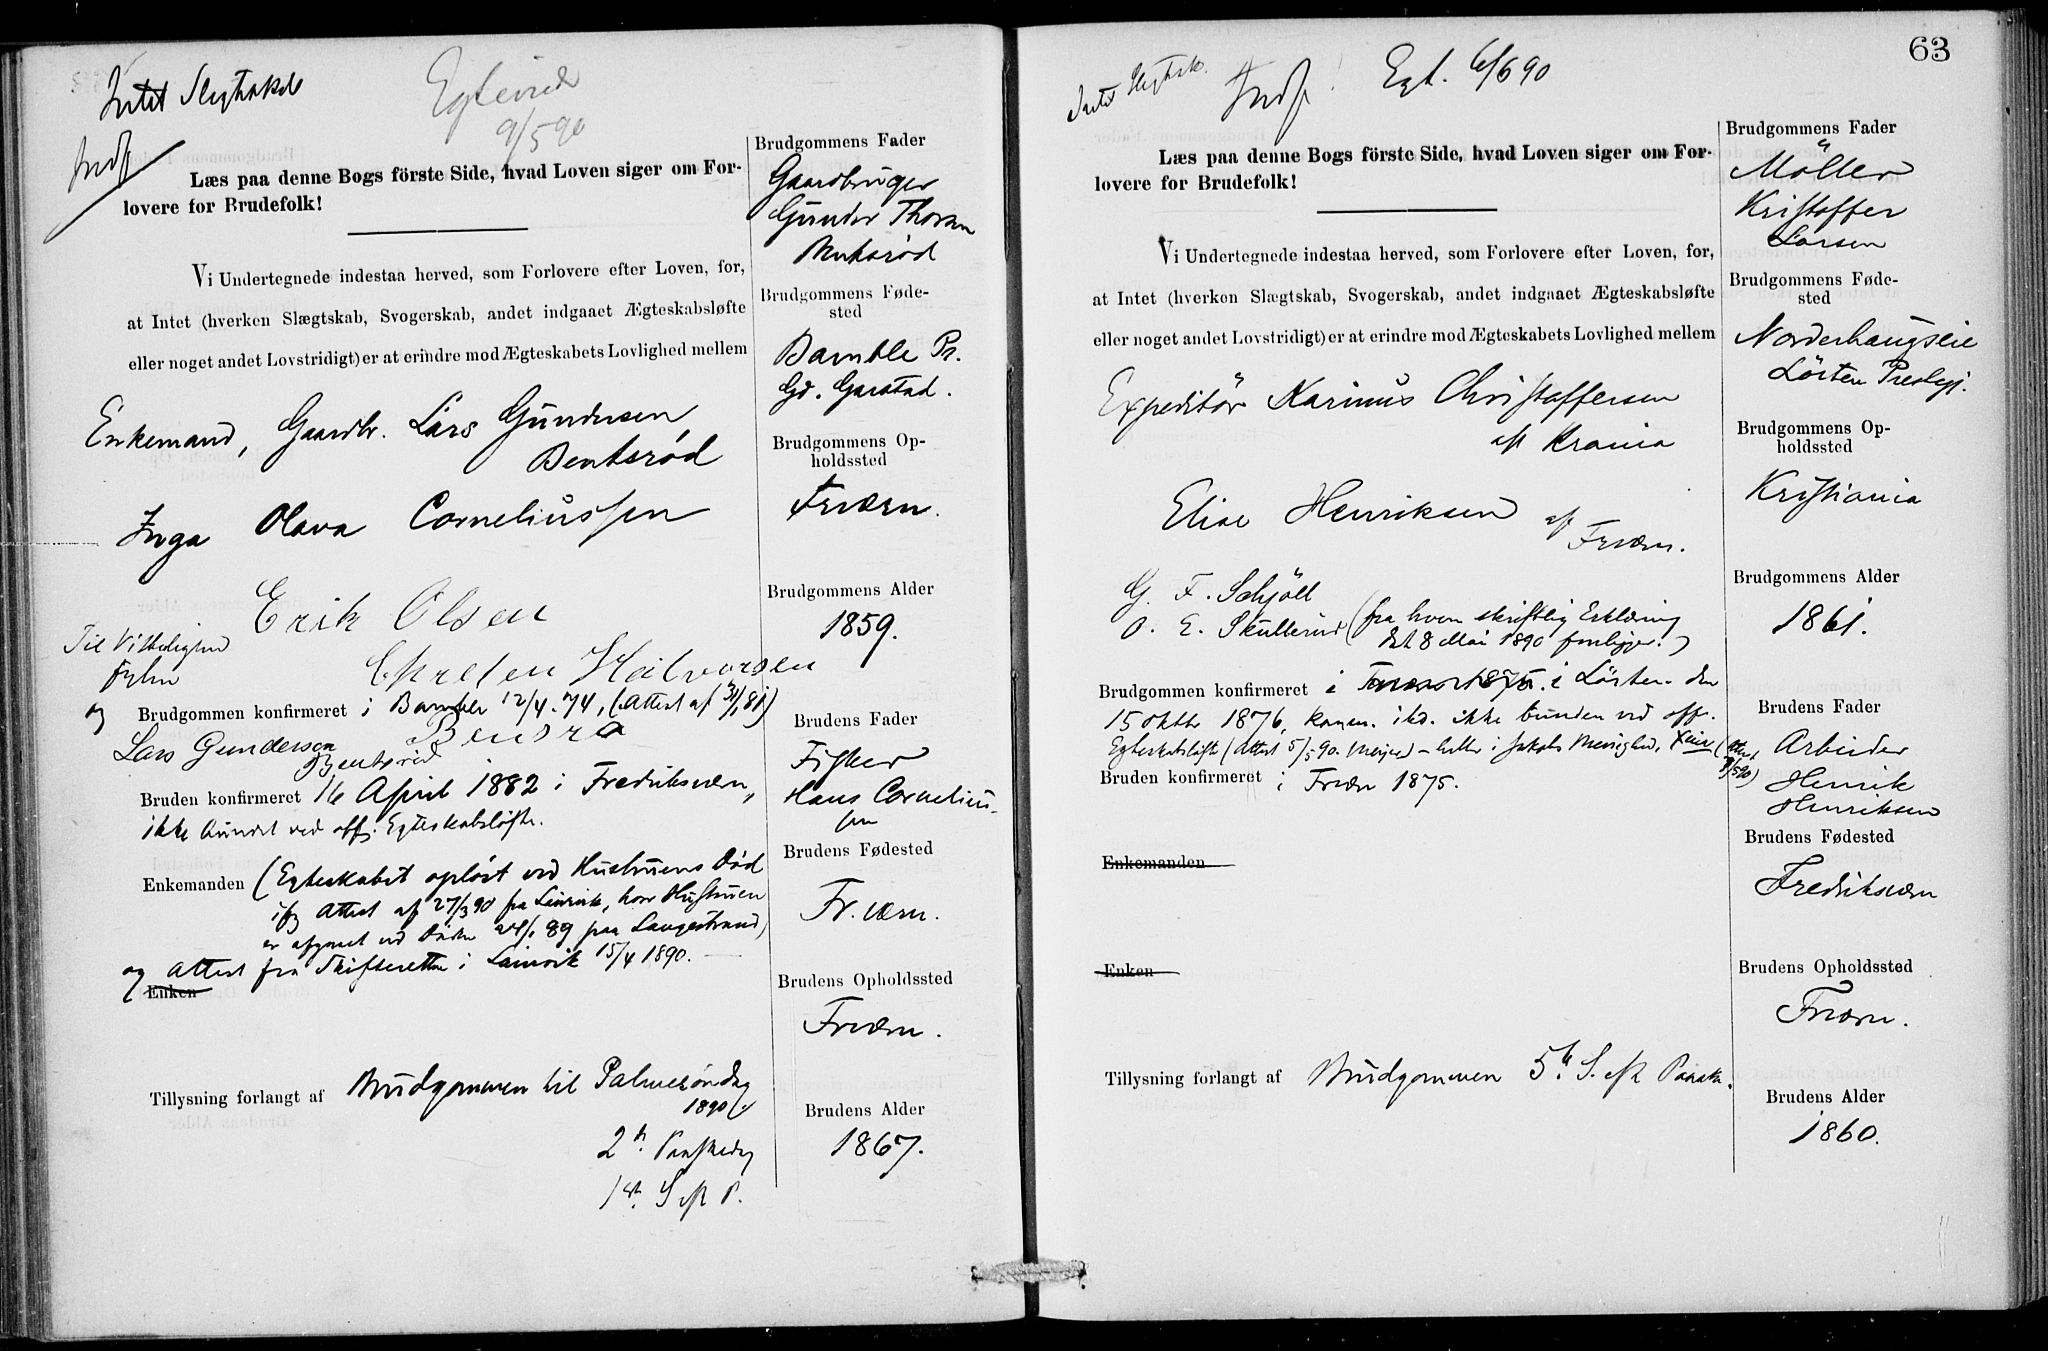 Intet Slegtskab
Egteviede
9/5 90
Indf
Læs paa denne Bogs förste Side, hvad Loven siger om For-
lovere for Brudefolk!
Vi Undertegnede indestaa herved, som Forlovere efter Loven, for,
at Intet (hverken Slægtskab, Svogerskab, andet indgaaet Ægteskabsløfte
eller noget andet Lovstridigt) er at erindre mod Ægteskabets Lovlighed mellem
Enkemand, Gaardbr. Lars Gundersen
Bentsrød
Inga Olava Corneliussen
Erik Olsen
Til Vitterlighed
Chresten Halvorsen
og
Brudgommen konfirmeret i Bamble 12/4 74, (Attest af 31/1 81)
Lars Gundersen
Bentsrød
Bruden konfirmeret 16 April 1882 i Fredriksværn,
ikke bundet ved off. Egteskabsløfte.
Enkemanden (Egteskabet opløst ved Hustruens Død
ifg Attest af 27/3 90 fra Laurvik, hvor Hustruen
er afgaaet ved Døden 24/1 89 paa Langestrand)
og Attest fra Skifteretten i Laurvik 15/4 1890.
Enken
Tillysning forlangt af Brudgommen til Palmesöndag
1890
2d. Paaskedag
1st. S. eft P.
Brudgommens Fader
Gaardbruger
Gunder Thorsen
Bentsrød
Brudgommens Føde-
sted
Bamble Pr.
Gd. Garstad.
Brudgommens Op-
holdssted
Frværn.
Brudgommens Alder
1859.
Brudens Fader
Fisker
Hans Cornelius-
sen
Brudens Fødested
Fr. værn.
Brudens Opholdssted
Frværn.
Brudens Alder
1867.
63
Intet Slegtsk.
Indf
Egt. 6/6 90
Læs paa denne Bogs förste Side, hvad Loven siger om For-
lovere for Brudefolk!
Vi Undertegnede indestaa herved, som Forlovere efter Loven, for,
at Intet (hverken Slægtskab, Svogerskab, andet indgaaet Ægteskabsløfte
eller noget andet Lovstridigt) er at erindre mod Ægteskabets Lovlighed mellem
Expeditör Karinus Christoffersen
af Krania
Elise Henriksen af
Frværn.
G. F. Schjöll
O. E. Skullerud (fra hvem skriftlig Erklæring
dat. 8 Mai 1890 foreligger.)
Brudgommen konfirmeret i Frværn 1875. i Lörten den
15 oktbr 1876, ikke bunden ved off.
Egteskabsløfte (Attest 5/5 90. - heller i Jakobs Menighed,
8/5 90)
Bruden konfirmeret i Frværn 1875.
Enkemanden
Enken
Tillysning forlangt af Brudgommen 5te S. eft Paaske.
Brudgommens Fader
Möller
Kristoffer
Larsen
Brudgommens Føde-
sted
Norderhaugseie
Lörten Prestegj.
Brudgommens Op-
holdssted
Kristiania
Brudgommens Alder
1861.
Brudens Fader
Arbeider
Henrik
Henriksen
Brudens Fødested
Fredriksværn
Brudens Opholdssted
Frværn.
Brudens Alder
1860.